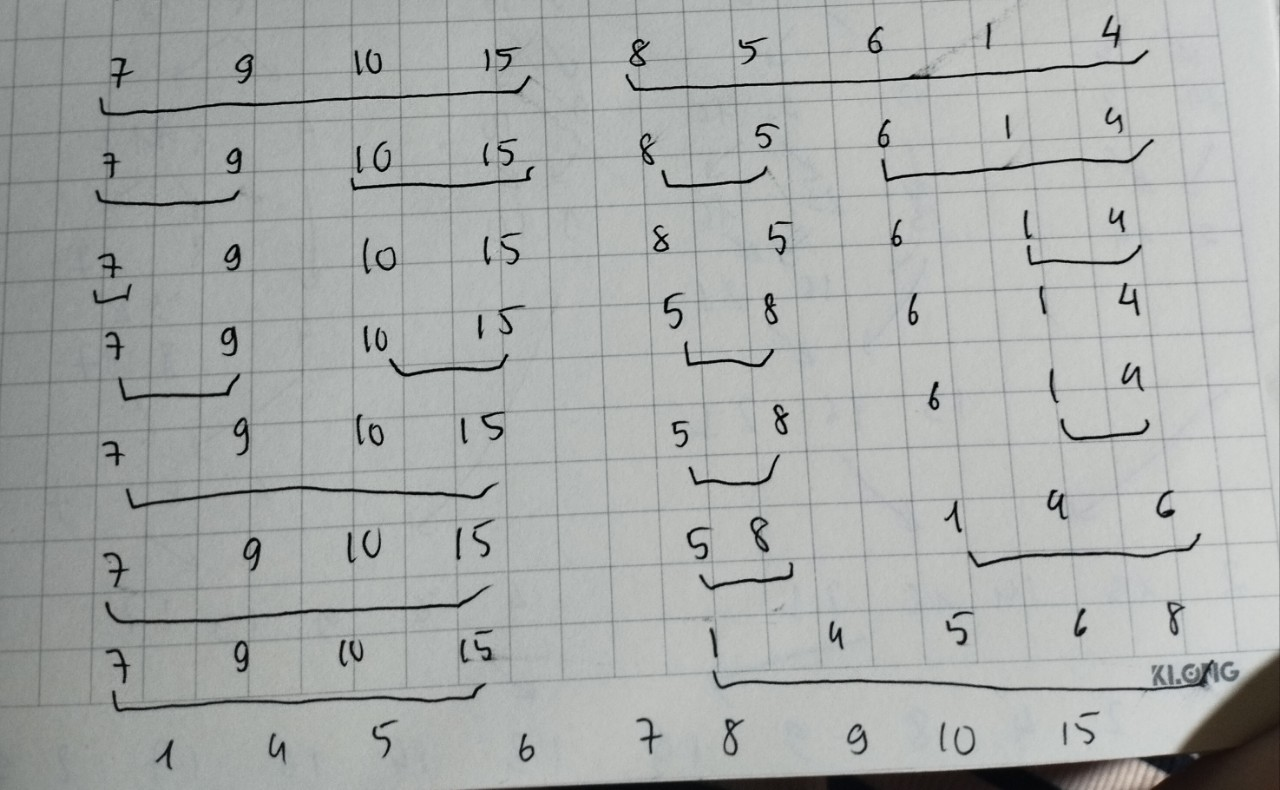 7 9 10 15 8 5 6 1 4
7 9 10 15 8 5 6 1 4
7 9 10 15 8 5 6 1 4
7 9 10 15 5 8 6 1 4
7 9 10 15 5 8 6 1 4
7 9 10 15 5 8 1 4 6
7 9 10 15 1 4 5 6 8
KLONG
1 4 5 6 7 8 9 10 15